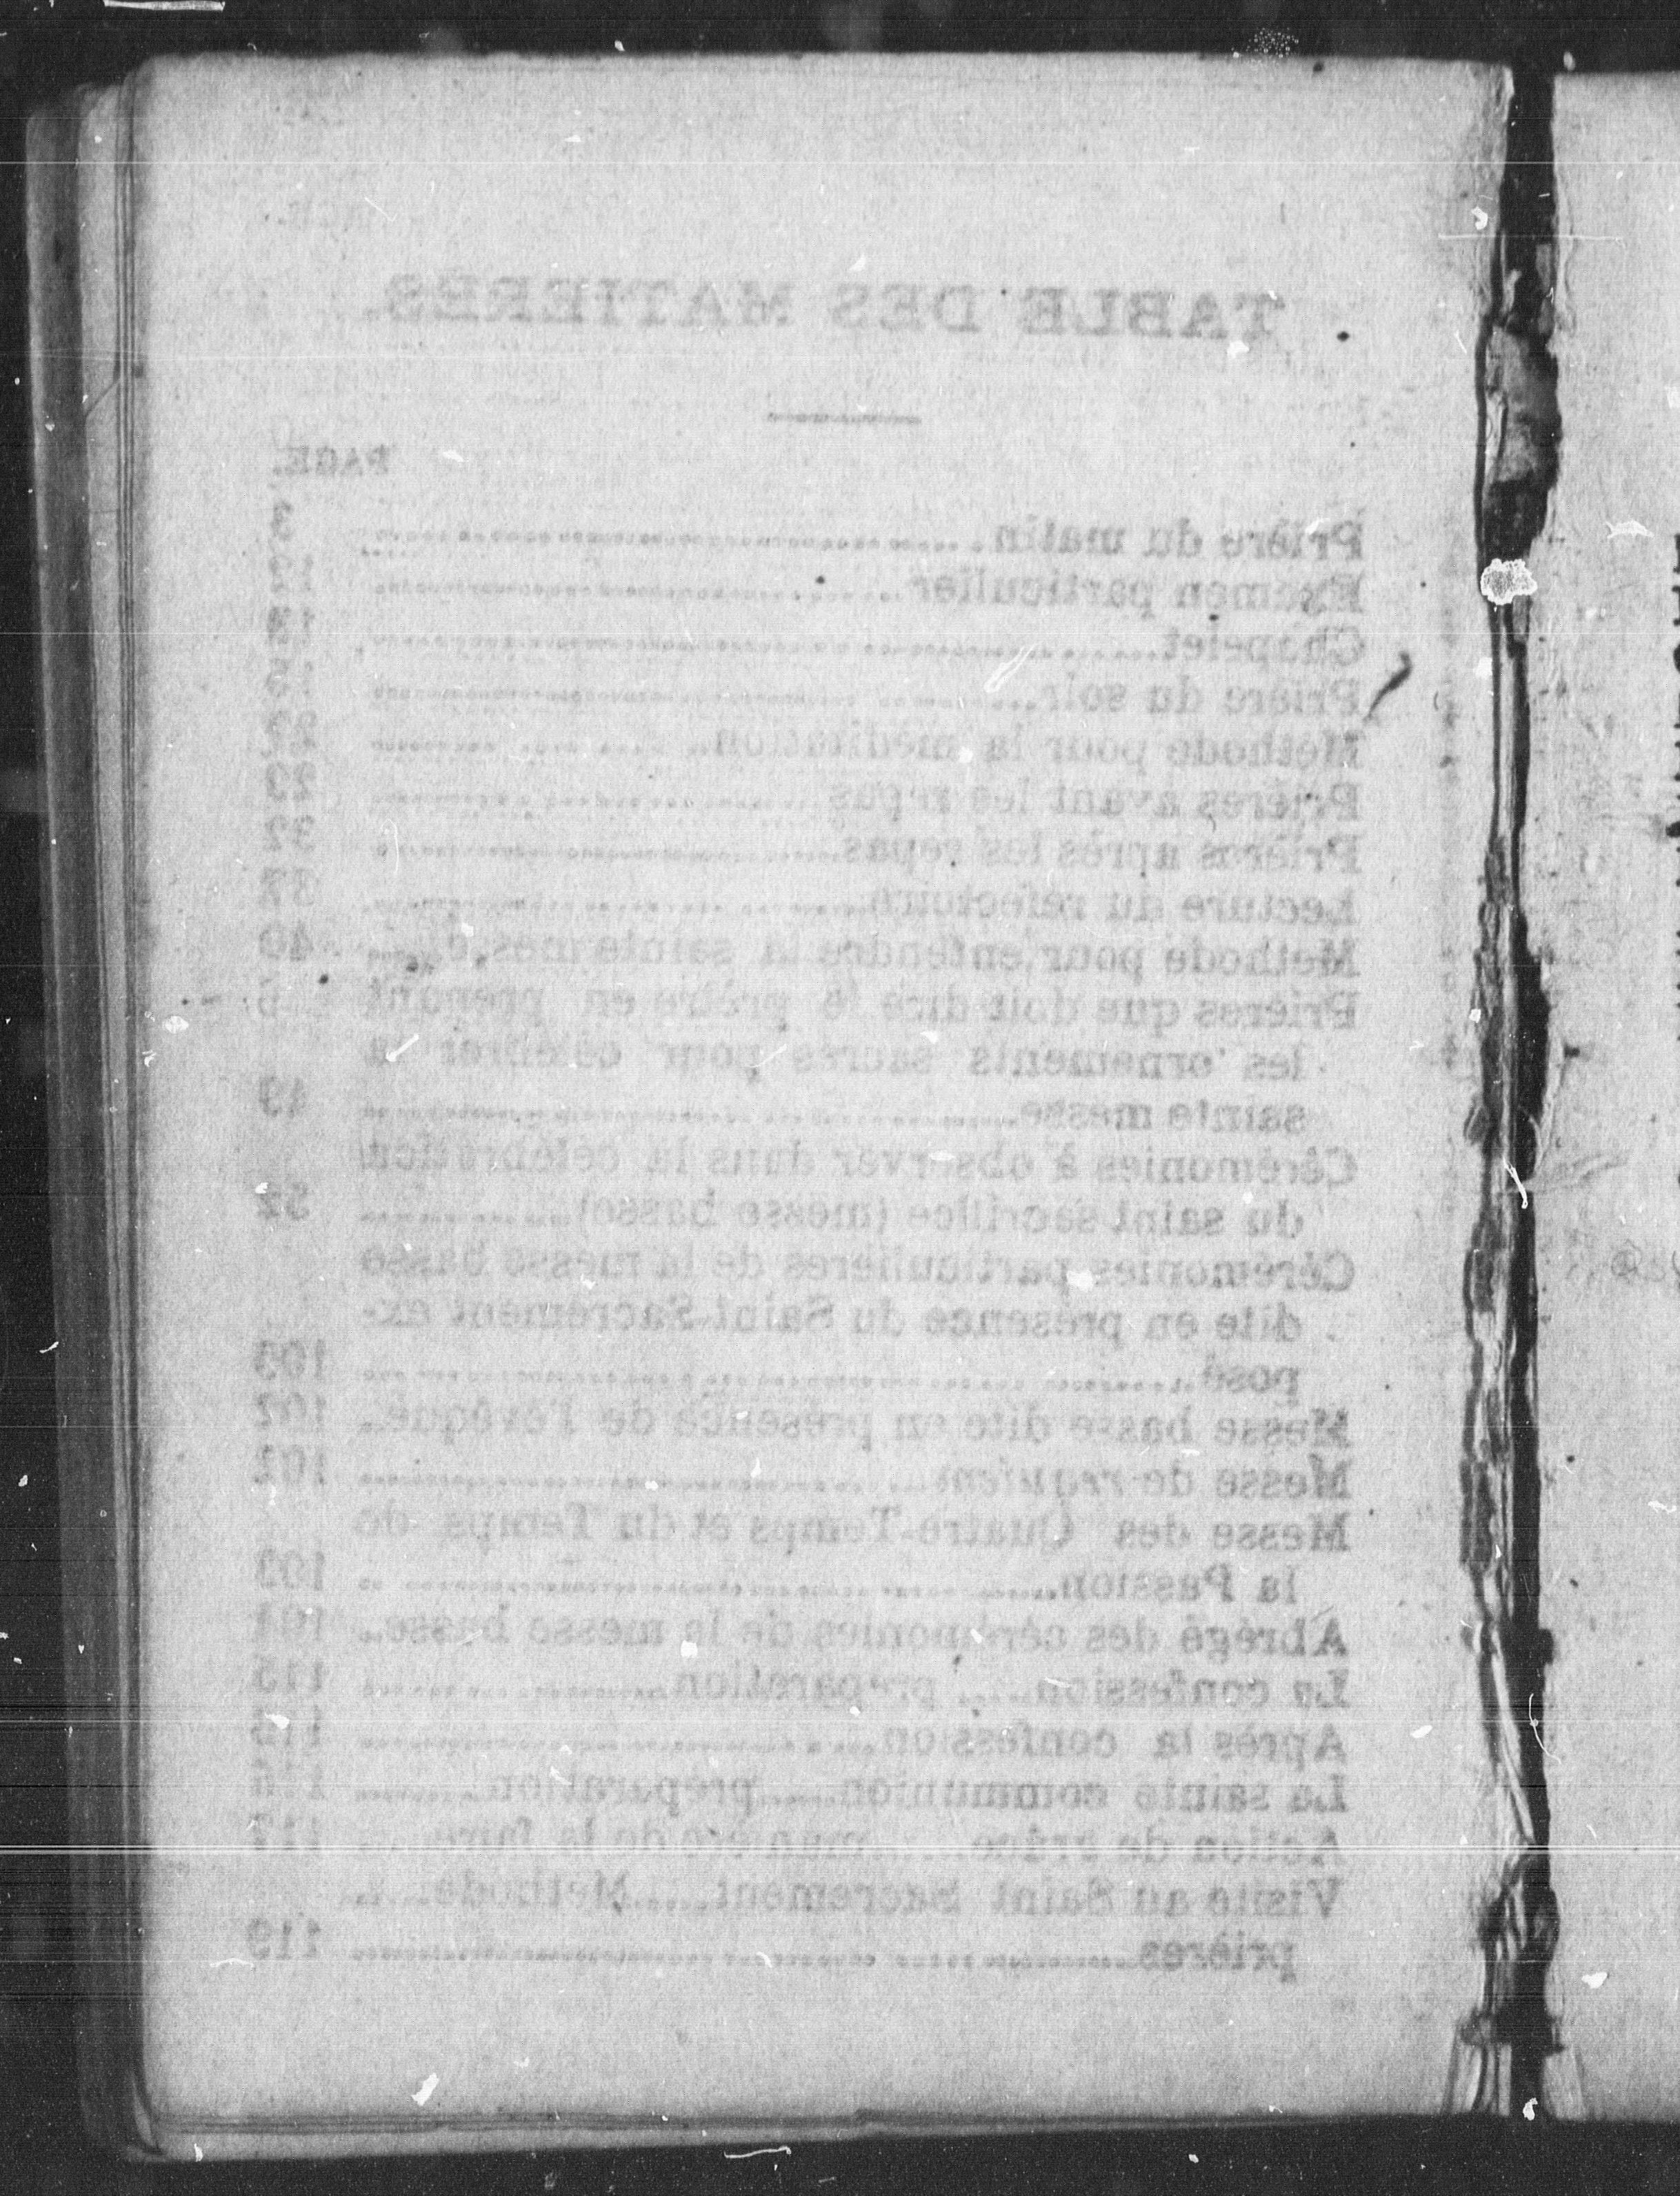 TABLE DES MATIERES.
PAGE.
Prière du matin
Examen particulier
Chapelet
Prière du soir
Méthode pour la méditation
Prières avant les repas
Prières après les repas
Lecture au réfectoire
Méthode pour entendre la sainte messe 40
Prières que doit dire le prêtre en prenant
les ornements sacrés pour célébrer la
sainte messe 49
Cérémonies à observer dans la célébration
du saint sacrifice (messe basse)
Cérémonies particulières de la messe basse
dite en présence du Saint-Sacrement ex-
posé
Messe basse dite en présence de l'évêque. 102
Messe de requiem 102
Messe des Quatre-Temps et du Temps de
la Passion 103
Abrégé des cérémonies de la messe basse. 104
La confession.... préparation
Après la confession
La sainte communion.... préparation
Action de grâce.... manière de la faire
Visite au Saint Sacrement.... Méthode....
prières 119